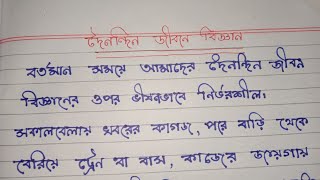 দৈনন্দিন জীবনে বিজ্ঞান
বর্তমান সময়ে আমাদের দৈনন্দিন জীবন
বিজ্ঞানের ওপর ভীষণভাবে নির্ভরশীল।
সকালবেলায় খবরের কাগজ, পরে বাড়ি থেকে
বেরিয়ে ট্রেন বা বাস, কাজের জায়গায়